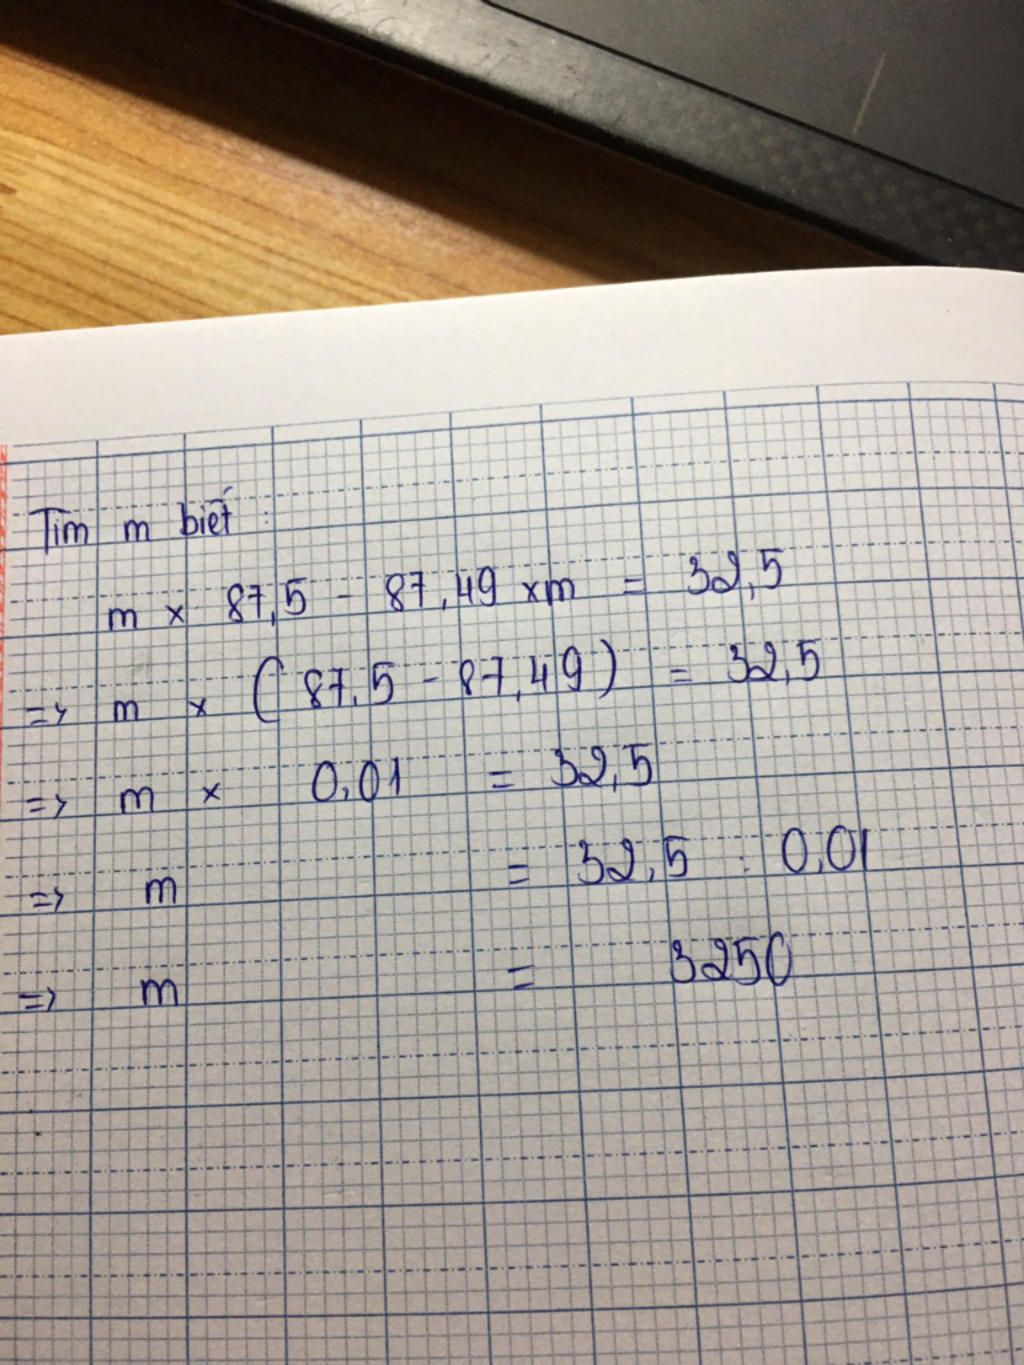 Tìm m biết :
m x 87,5 - 87,49 x m = 32,5
=> m x (87,5 - 87,49) = 32,5
=> m x 0,01 = 32,5
=> m = 32,5 : 0,01
=> m = 3250